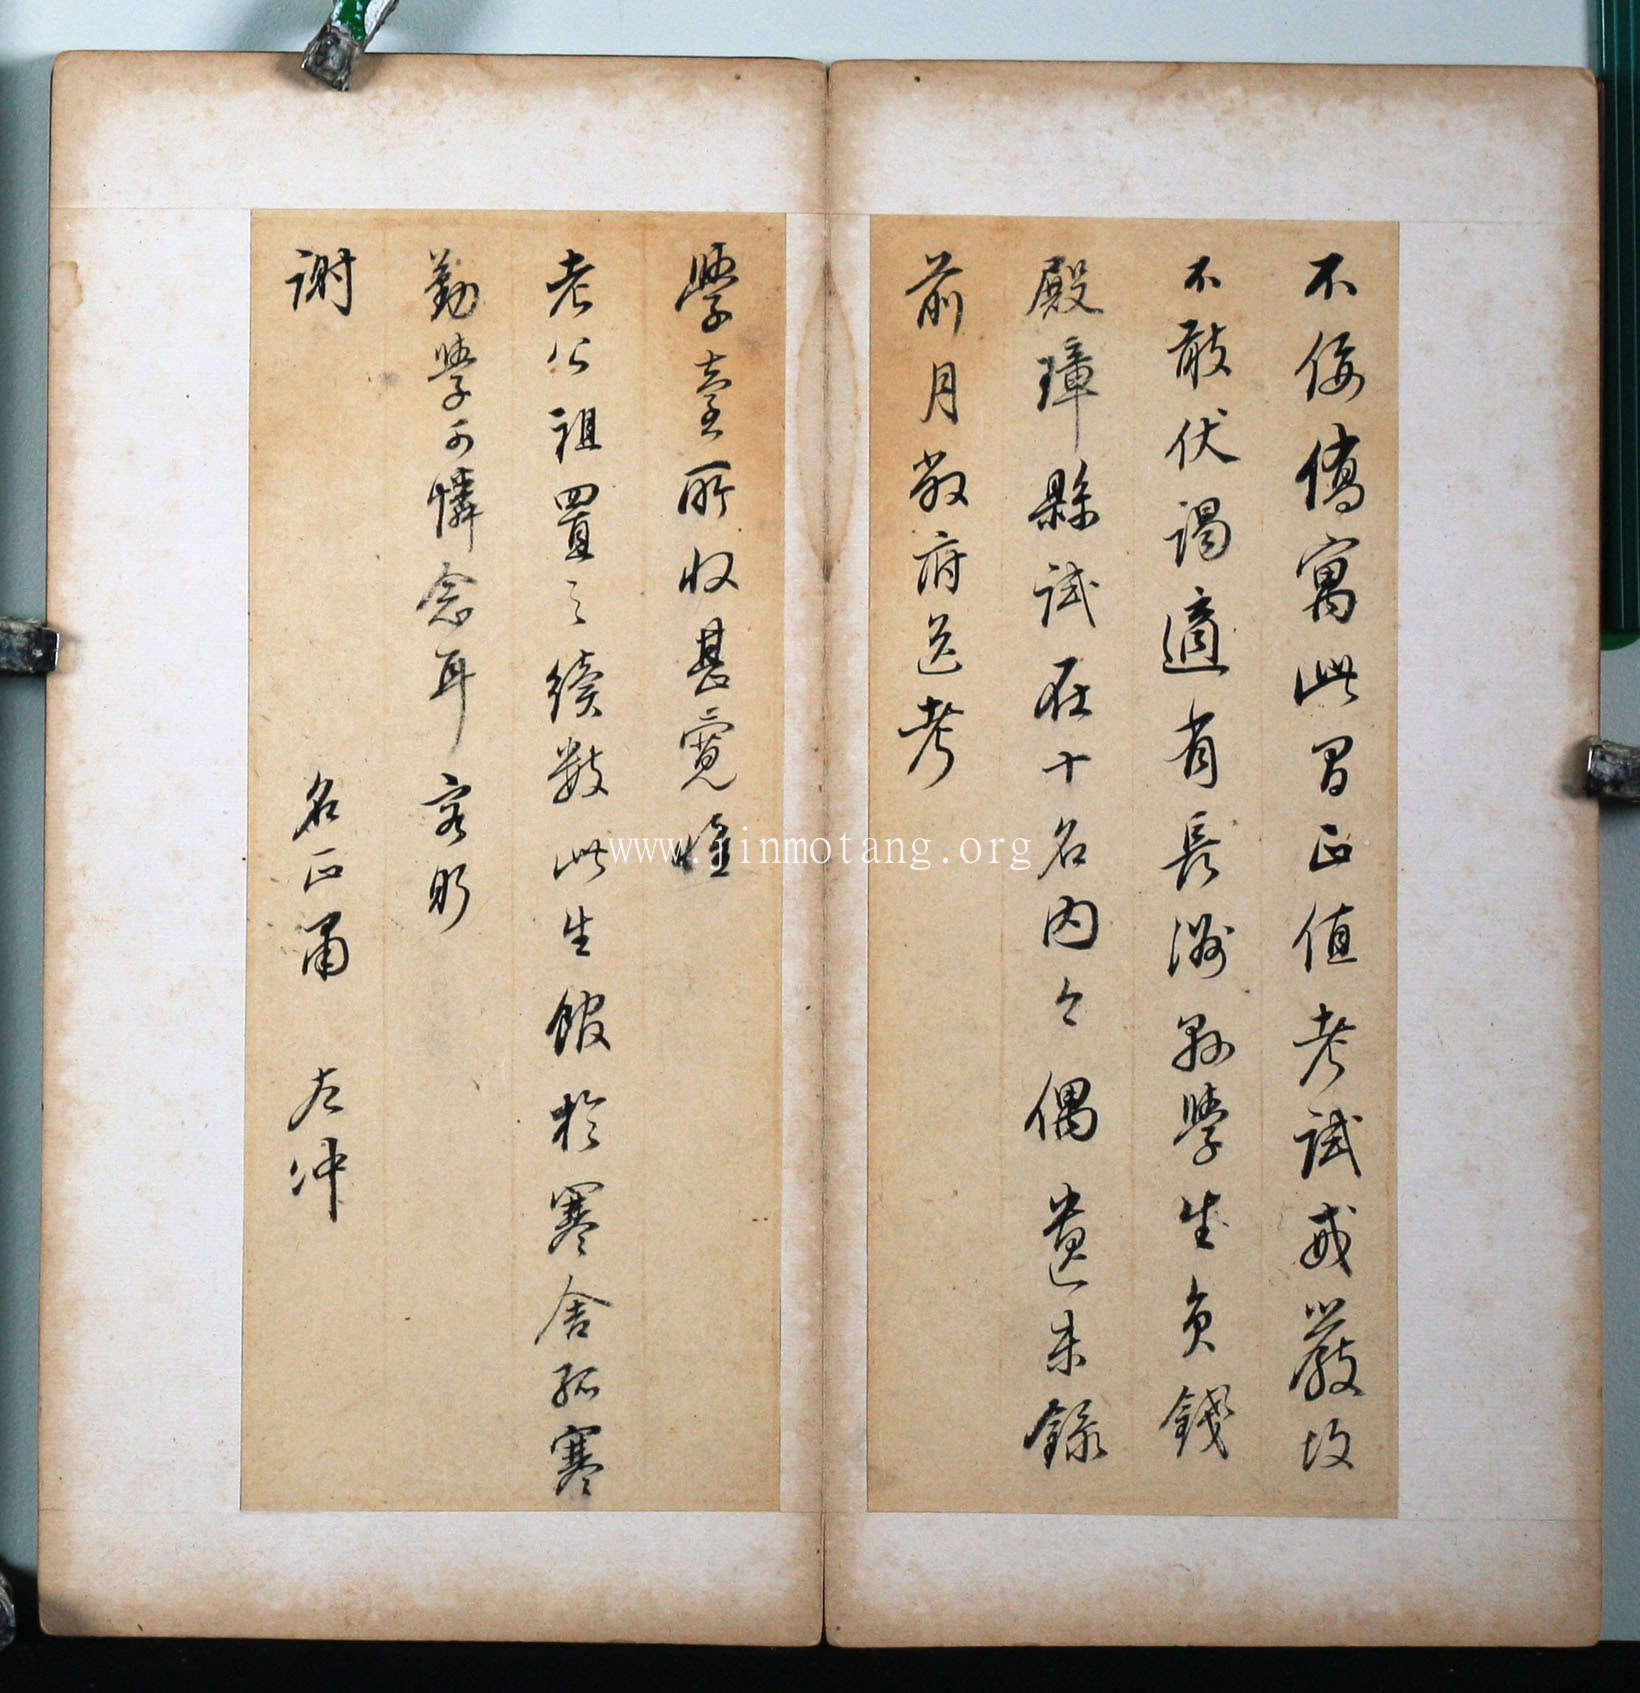 不佞僑寓此間正值考試戒嚴故
不敢伏謁適有長洲縣學生員錢
殿璋縣試在十名內今偶遺未錄
前月敝府送考
學臺所收甚寬惟
老公祖置之續數此生館於寒舍孤寒
勤學可憐念耳容躬
謝
名正肅 左冲
www.jinmotang.org